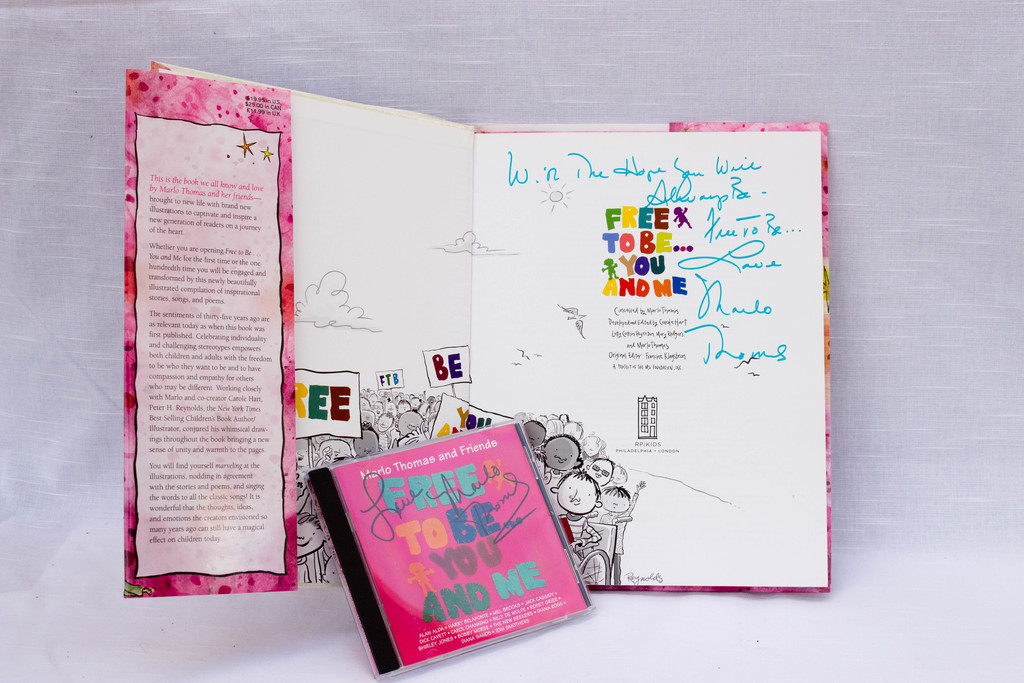 $19.95 in U.S.
$25.00 in CAN
£14.99 in U.K.
This is the book we all know and love
by Marlo Thomas and her friends—
brought to new life with brand new
illustrations to captivate and inspire a
new generation of readers on a journey
of the heart.
Whether you are opening Free to Be . . .
You and Me for the first time or the one
hundredth time you will be engaged and
transformed by this newly beautifully
illustrated compilation of inspirational
stories, songs, and poems.
The sentiments of thirty-five years ago are
as relevant today as when this book was
first published. Celebrating individuality
and challenging stereotypes empowers
both children and adults with the freedom
to be who they want to be and to have
compassion and empathy for others
who may be different. Working closely
with Marlo and co-creator Carole Hart,
Peter H. Reynolds, the New York Times
Best Selling Children's Book Author/
Illustrator, conjured his whimsical draw-
ings throughout the book bringing a new
sense of unity and warmth to the pages.
You will find yourself marveling at the
illustrations, nodding in agreement
with the stories and poems, and singing
the words to all the classic songs! It is
wonderful that the thoughts, ideas,
and emotions the creators envisioned so
many years ago can still have a magical
effect on children today.
REE
FTB
BE
YOU
With The Hope You Will
Always Be -
Free To Be...
Love
Marlo
Thomas
FREE
TO BE...
YOU
AND ME
Conceived by Marlo Thomas
Developed and Edited by Carole Hart
Letty Cottin Pogrebin, Mary Rodgers
and Marlo Thomas
Original Editor: Francine Klagsbrun
A Project of the Ms. Foundation, Inc.
RP|KIDS
PHILADELPHIA • LONDON
Reynolds
Marlo Thomas and Friends
FREE
TO BE...
YOU
AND ME
Love, Marlo
Thomas
ALAN ALDA • HARRY BELAFONTE • MEL BROOKS • JACK CASSIDY •
DICK CAVETT • CAROL CHANNING • BILLY DE WOLFE • ROSEY GRIER •
SHIRLEY JONES • BOBBY MORSE • THE NEW SEEKERS • DIANA ROSS •
DIANA SANDS • TOM SMOTHERS